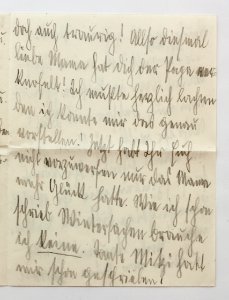 doch auch, traurig! Allso diesmal
liebe Mama hat dich der Papa ver-
knofelt! Ich mußte herzlich lachen
den ich konnte mir das genau
vorstellen! Jetzt habt Ihr Euch
nicht vorzuwerfen nur das Mama
mehr Glück hatte. Wie ich schon
schrieb Wintersachen brauche
ich keine. Tante Mitzi hatt
mir schon geschrieben!